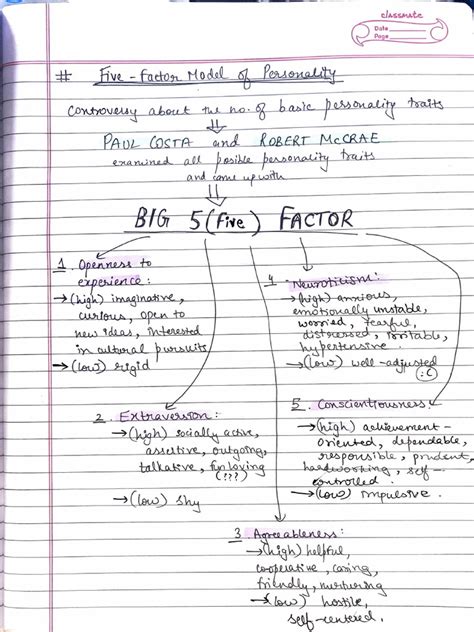 classmate
Date
Page
# Five-Factor Model of Personality
Controversy about the no. of basic personality traits
⇓
PAUL COSTA and ROBERT McCRAE
examined all posible personality traits
and came up with
⇓
BIG 5 (Five) FACTOR
1. Openness to
experience:
→ (high) imaginative,
curious, open to
new ideas, interested
in cultural pursuits
→ (low) rigid
4. Neuroticism:
→ (high) anxious,
emotionally unstable,
worried, fearful,
distressed, irritable,
hypertensive
→ (low) well-adjusted
:C
2. Extraversion:
→ (high) socially active,
assertive, outgoing,
talkative, fun loving
(???)
→ (low) shy
5. Conscientiousness:
→ (high) achievement-
oriented, dependable,
responsible, prudent,
hardworking, self-
controlled.
→ (low) impulsive.
3. Agreeableness:
→ (high) helpful,
cooperative, caring,
friendly, nurturing
→ (low) hostile,
self-centered.